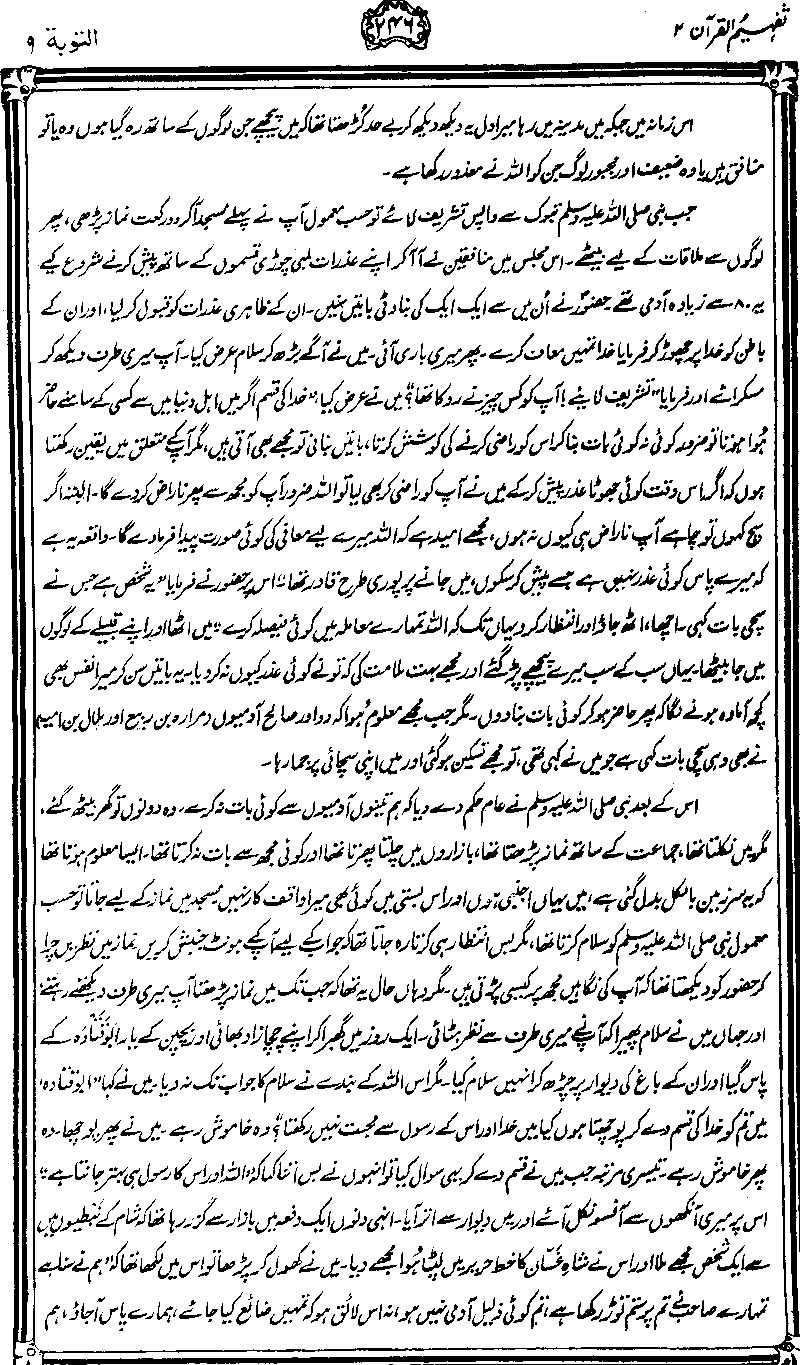 تفہیم القرآن ۲
۲۴۶
التوبۃ ۹
اس زمانہ میں جبکہ میں مدینہ میں رہا میرا دل یہ دیکھ دیکھ کر بے حد کُڑھتا تھا کہ میں پیچھے جن لوگوں کے ساتھ رہ گیا ہوں وہ یا تو
منافق ہیں یا وہ ضعیف اور مجبور لوگ جن کو اللہ نے معذور رکھا ہے۔
جب نبی صلی اللہ علیہ وسلم تبوک سے واپس تشریف لائے تو حسب معمول آپ نے پہلے مسجد آکر دو رکعت نماز پڑھی، پھر
لوگوں سے ملاقات کے لیے بیٹھے۔ اس مجلس میں منافقین نے آ آکر اپنے عذرات لمبی چوڑی قسموں کے ساتھ پیش کرنے شروع کیے
یہ ۸۰ سے زیادہ آدمی تھے۔ حضورؐ نے اُن میں سے ایک ایک کی بناوٹی باتیں سنیں۔ ان کے ظاہری عذرات کو قبول کر لیا، اور ان کے
باطن کو خدا پر چھوڑ کر فرمایا خدا تمہیں معاف کرے۔ پھر میری باری آئی۔ میں نے آگے بڑھ کر سلام عرض کیا۔ آپ میری طرف دیکھ کر
مسکرائے اور فرمایا "تشریف لائیے! آپ کو کس چیز نے روکا تھا؟" میں نے عرض کیا، "خدا کی قسم اگر میں اہل دنیا میں سے کسی کے سامنے حاضر
ہُوا ہوتا تو ضرور کوئی نہ کوئی بات بنا کر اس کو راضی کرنے کی کوشش کرتا، باتیں بنانی تو مجھے بھی آتی ہیں، مگر آپ کے متعلق میں یقین رکھتا
ہوں کہ اگر اس وقت کوئی جھوٹا عذر پیش کر کے میں نے آپ کو راضی کر بھی لیا تو اللہ ضرور آپ کو مجھ سے پھر ناراض کر دے گا۔ البتہ اگر
سچ کہوں تو چاہے آپ ناراض ہی کیوں نہ ہوں، مجھے امید ہے کہ اللہ میرے لیے معافی کی کوئی صورت پیدا فرما دے گا۔ واقعہ یہ ہے
کہ میرے پاس کوئی عذر نہیں ہے جسے پیش کر سکوں، میں جانے پر پوری طرح قادر تھا" اس پر حضورؐ نے فرمایا "یہ شخص ہے جس نے
سچی بات کہی۔ اچھا، اٹھ جاؤ اور انتظار کرو یہاں تک کہ اللہ تمہارے معاملہ میں کوئی فیصلہ کرے" میں اٹھا اور اپنے قبیلے کے لوگوں
میں جا بیٹھا۔ یہاں سب کے سب میرے پیچھے پڑ گئے اور مجھے بہت ملامت کی کہ تو نے کوئی عذر کیوں نہ کر دیا۔ یہ باتیں سن کر میرا نفس بھی
کچھ آمادہ ہونے لگا کہ پھر حاضر ہو کر کوئی بات بنا دوں۔ مگر جب مجھے معلوم ہُوا کہ دو اور صالح آدمیوں (مرارہ بن ربیع اور ہلال بن امیہ)
نے بھی وہی سچی بات کہی ہے جو میں نے کہی تھی، تو مجھے تسکین ہو گئی اور میں اپنی سچائی پر جما رہا۔
اس کے بعد نبی صلی اللہ علیہ وسلم نے عام حکم دے دیا کہ ہم تینوں آدمیوں سے کوئی بات نہ کرے۔ وہ دونوں تو گھر بیٹھ گئے،
مگر میں نکلتا تھا، جماعت کے ساتھ نماز پڑھتا تھا، بازاروں میں چلتا پھرتا تھا اور کوئی مجھ سے بات نہ کرتا تھا۔ ایسا معلوم ہوتا تھا
کہ یہ سرزمین بالکل بدل گئی ہے، میں یہاں اجنبی ہوں اور اس بستی میں کوئی بھی میرا واقف کار نہیں۔ مسجد میں نماز کے لیے جاتا تو حسب
معمول نبی صلی اللہ علیہ وسلم کو سلام کرتا تھا، مگر بس انتظار ہی کرتا رہ جاتا تھا کہ جواب کے لیے آپ کے ہونٹ جنبش کریں۔ نماز میں نظریں چرا
کر حضور کو دیکھتا تھا کہ آپ کی نگاہیں مجھ پر کیسی پڑتی ہیں۔ مگر وہاں حال یہ تھا کہ جب تک میں نماز پڑھتا آپ میری طرف دیکھتے رہتے
اور جہاں میں نے سلام پھیرا کہ آپ نے میری طرف سے نظر ہٹائی۔ ایک روز میں گھبرا کر اپنے چچا زاد بھائی اور بچپن کے یار ابو قَتادہ کے
پاس گیا اور ان کے باغ کی دیوار پر چڑھ کر انہیں سلام کیا۔ مگر اس اللہ کے بندے نے سلام کا جواب تک نہ دیا۔ میں نے کہا "ابو قتادہ،
میں تم کو خدا کی قسم دے کر پوچھتا ہوں کیا میں خدا اور اس کے رسول سے محبت نہیں رکھتا؟" وہ خاموش رہے۔ میں نے پھر پوچھا۔ وہ
پھر خاموش رہے۔ تیسری مرتبہ جب میں نے قسم دے کر یہی سوال کیا تو انہوں نے بس اتنا کہا کہ "اللہ اور اس کا رسول ہی بہتر جانتا ہے"
اس پر میری آنکھوں سے آنسو نکل آئے اور میں دیوار سے اتر آیا۔ انہی دنوں ایک دفعہ میں بازار سے گزر رہا تھا کہ شام کے نبطیوں میں
سے ایک شخص مجھے ملا اور اس نے شاہِ غَسّان کا خط حریر میں لپٹا ہُوا مجھے دیا۔ میں نے کھول کر پڑھا تو اس میں لکھا تھا کہ "ہم نے سنا ہے
تمہارے صاحب نے تم پر ستم توڑ رکھا ہے، تم کوئی ذلیل آدمی نہیں ہو، نہ اس لائق ہو کہ تمہیں ضائع کیا جائے، ہمارے پاس آجاؤ، ہم